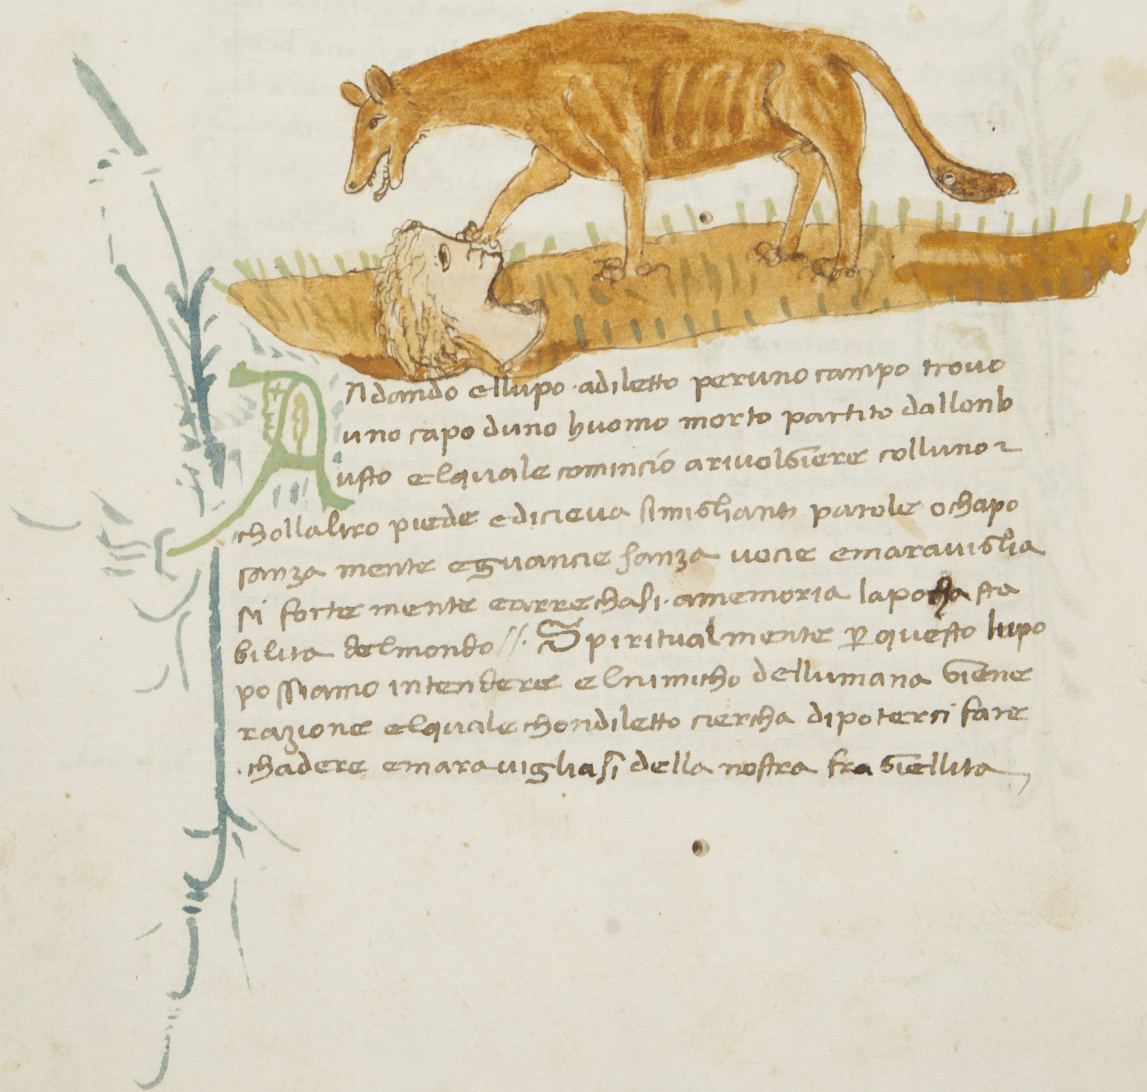 Andando ellupo adiletto peruno campo trovo
uno capo duno huomo morto partito dallonb
usto elquale comincio arivolgiere colluno
chollaltro piede edicieva simighanti parole ochapo
sanza mente eguancie sanza vocie emaraviglia
si forte mente earrechasi amemoria lapocha sta
bilita delmondo //. Spiritualmente p questo lupo
possiamo intendere elnimicho dellumana giene
razione elquale chondiletto ciercha dipoterci fare
chadere emaravigliasi della nostra fragiellita